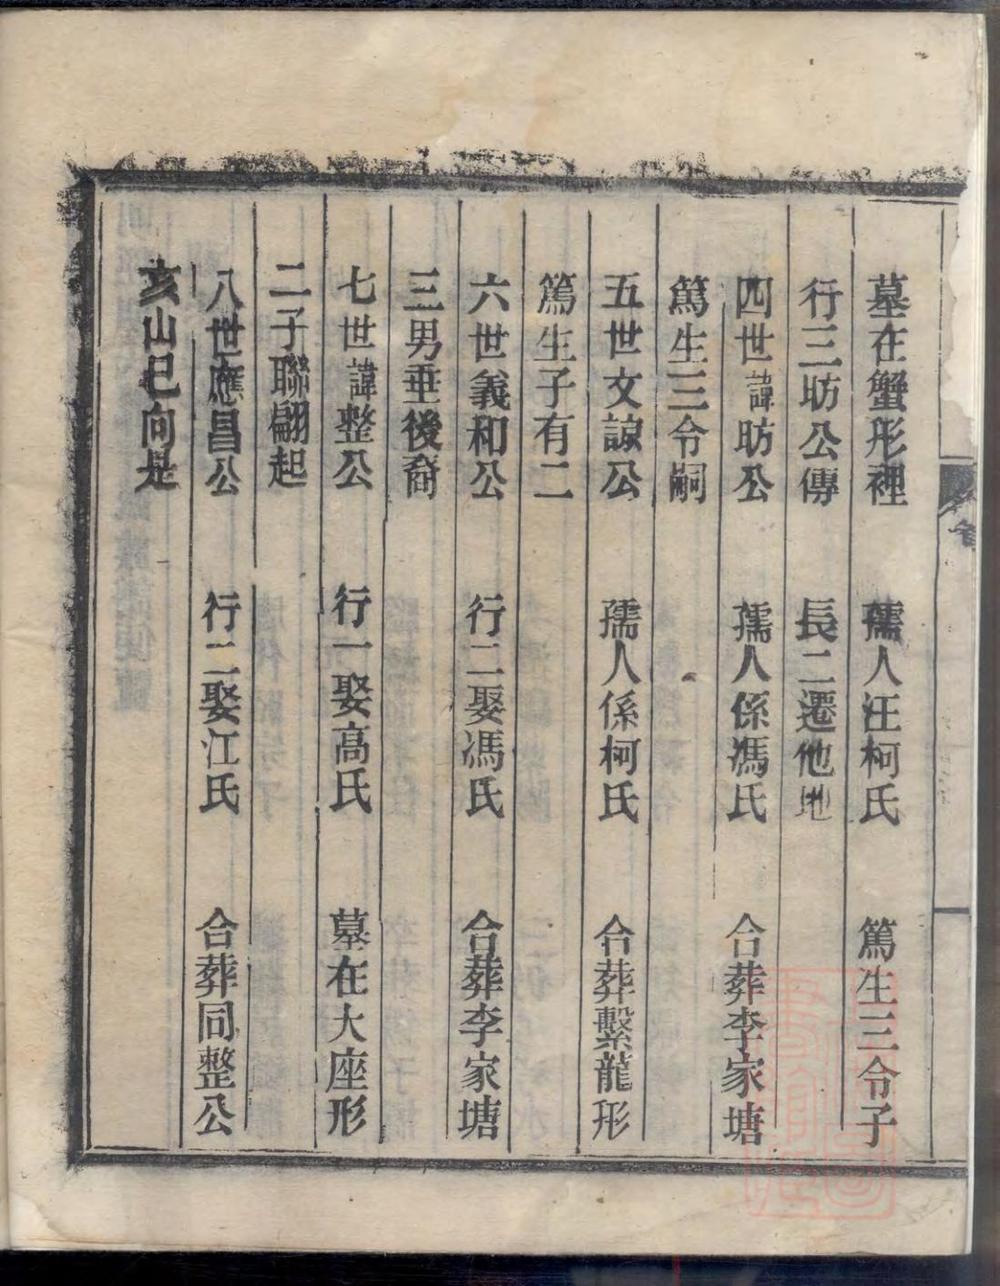 墓在蟹形裡　孺人汪柯氏　篤生三令子
行三昉公傳　長二遷他地
四世諱昉公　孺人係馮氏　合葬李家塘
篤生三令嗣
五世文諒公　孺人係柯氏　合葬繫龍形
篤生子有二
六世義和公　行二娶馮氏　合葬李家塘
三男垂後裔
七世諱整公　行一娶高氏　墓在大座形
二子聯翩起
八世應昌公　行二娶江氏　合葬同整公
亥山巳向是